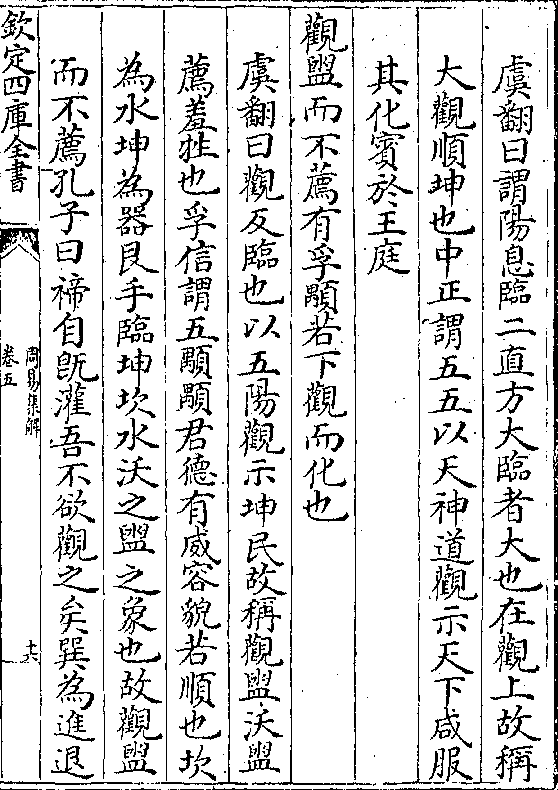 虞翻曰謂陽息臨二直方大臨者大也在觀上故稱
大觀順坤也中正謂五五以天神道觀示天下咸服
其化賓於王庭
觀盥而不薦有孚顒若下觀而化也
虞翻曰觀反臨也以五陽觀示坤民故稱觀盥沃盥
薦羞牲也孚信謂五顒顒君德有威容貌若順也坎
為水坤為器艮手臨坤坎水沃之盥之象也故觀盥
而不薦孔子曰禘自既灌吾不欲觀之矣巽為進退
欽定四庫全書
周易集解
卷五
十六